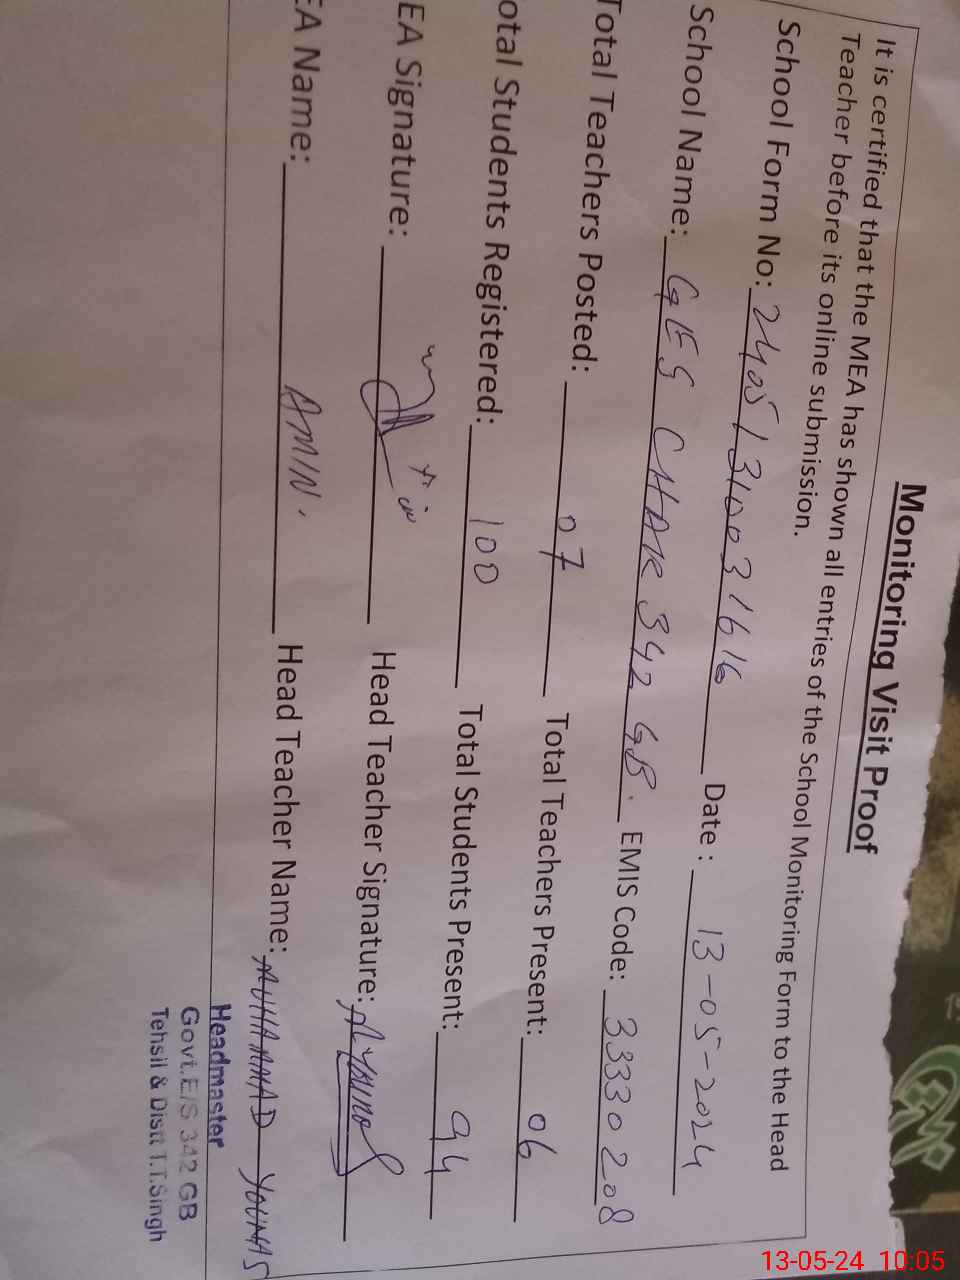 Monitoring Visit Proof
It is certified that the MEA has shown all entries of the School Monitoring Form to the Head
Teacher before its online submission.
School Form No: 24051310031616 Date : 13-05-2024
School Name: GES CHAK 342 GB. EMIS Code: 33330208
Total Teachers Posted: 07 Total Teachers Present: 06
otal Students Registered: 100 Total Students Present: 94
EA Signature: Head Teacher Signature:
EA Name: AMIN. Head Teacher Name: MUHAMMAD YOUNAS
Headmaster
Govt.E/S 342 GB
Tehsil & Distt T.T.Singh
13-05-24 10:05